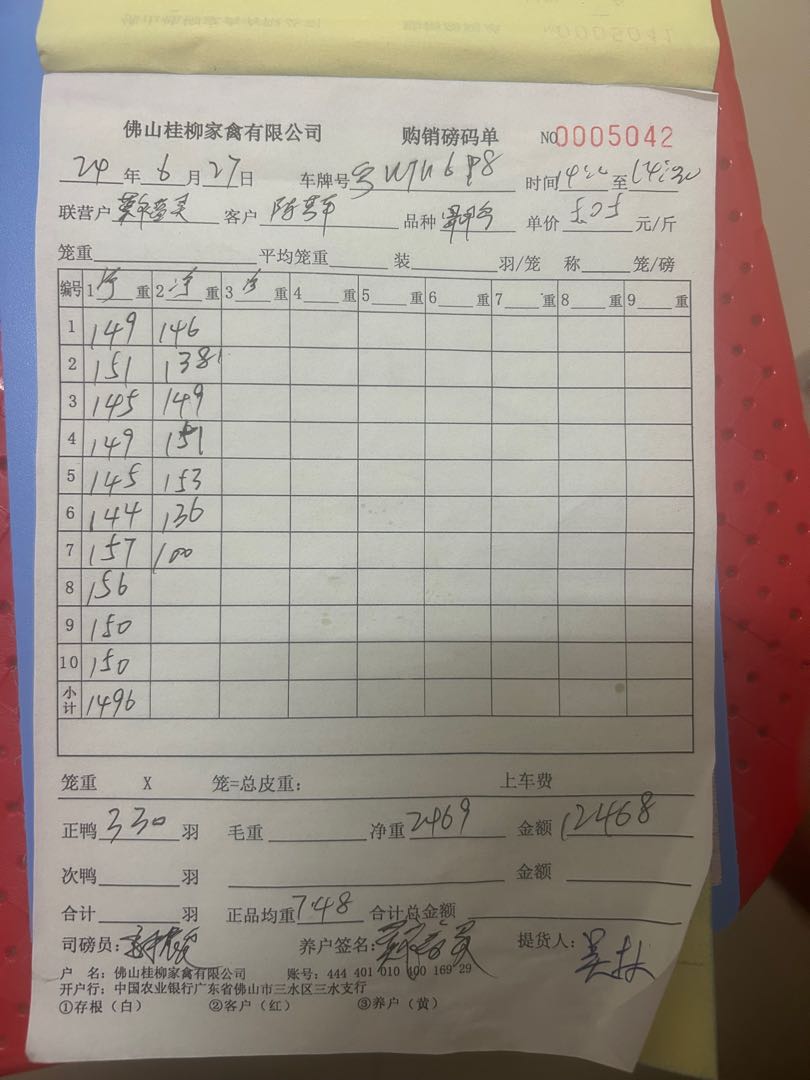 佛山桂柳家禽有限公司 购销磅码单 NO0005042
24年6月27日 车牌号 时间 至
联营户 客户 品种 单价 5.05 元/斤
笼重 平均笼重 装 羽/笼 称 笼/磅
编号 1净重 2净重 3净重 4重 5重 6重 7重 8重 9重
1 149 146
2 151 138
3 145 149
4 149 151
5 145 153
6 144 136
7 157 100
8 156
9 150
10 150
小计 1496
笼重 X 笼=总皮重: 上车费
正鸭330羽 毛重 净重2469 金额12468
次鸭 羽 金额
合计 羽 正品均重7.48 合计总金额
司磅员: 养户签名: 提货人:
户 名:佛山桂柳家禽有限公司 账号:444 401 010 400 169 29
开户行:中国农业银行广东省佛山市三水区三水支行
①存根(白) ②客户(红) ③养户(黄)